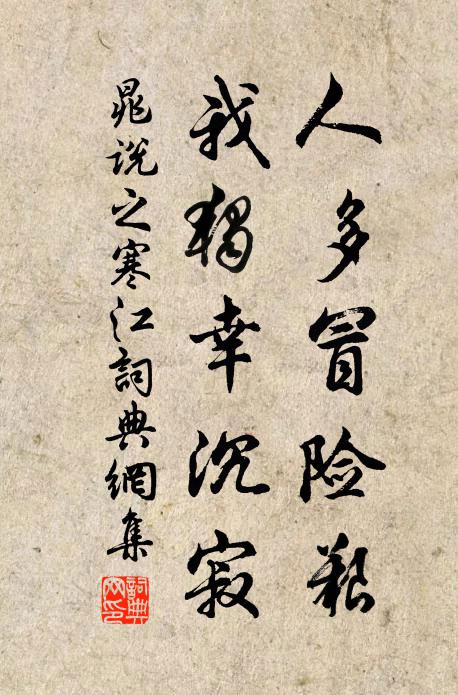 人多冒险艱
我獨幸沉寂
晁说之寒江詞典網集
詞典
网印